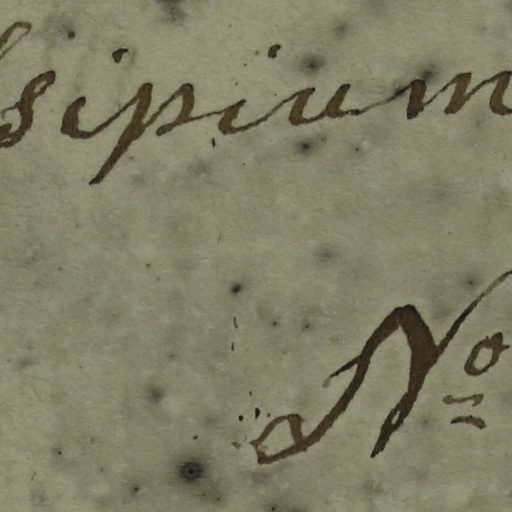 ssipium
No